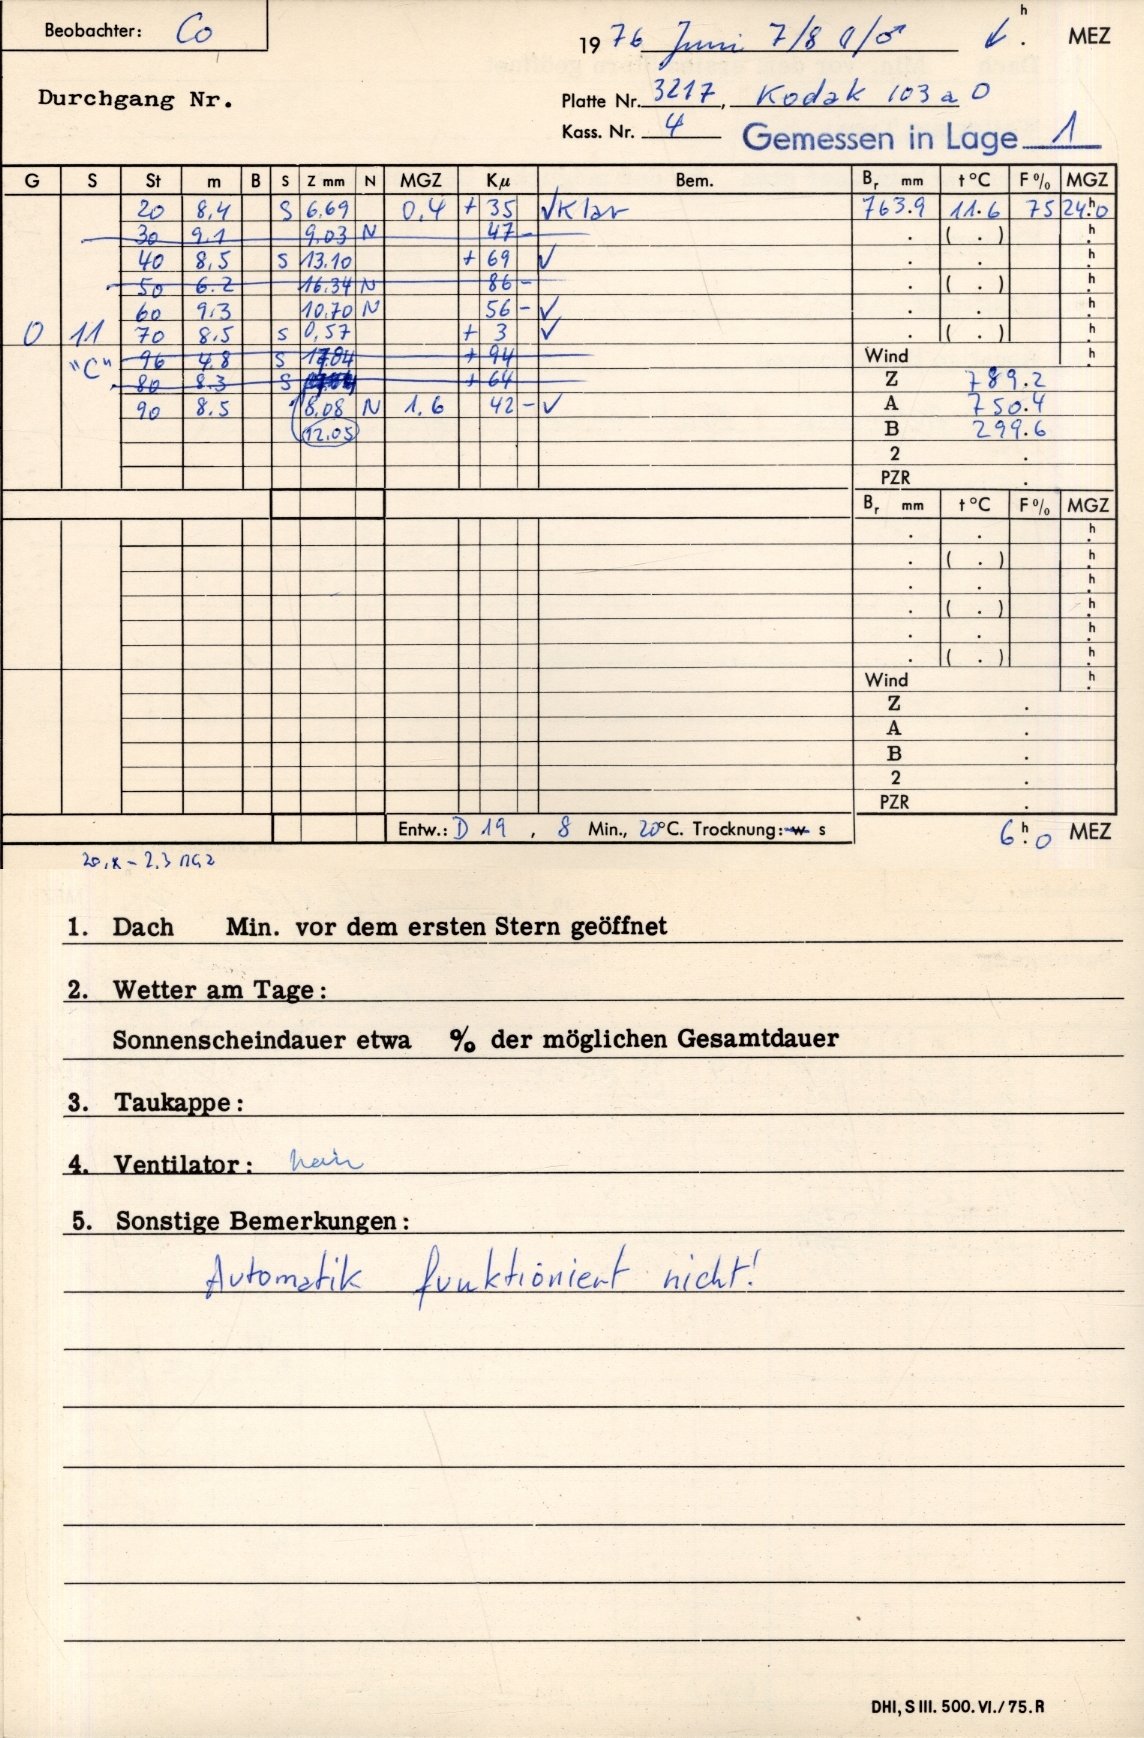 Beobachter: Co
1976 Juni 7/8 ☾/♂ h . MEZ
Durchgang Nr.
Platte Nr. 3217, Kodak 103 a O
Kass. Nr. 4 Gemessen in Lage 1
G S St m B S Z mm N MGZ Kμ Bem. Br mm t °C F % MGZ
20 8,4 S 6,69 0,4 + 35 √ Klar 763.9 11.6 75 24h.0
30 9.1 9,03 N 47 - . ( . ) h.
40 8,5 S 13.10 + 69 √ . . h.
50 6.2 16.34 N 86 - . ( . ) h.
60 9,3 10,70 N 56 - √ . . h.
0 11 70 8.5 S 0,57 + 3 √ . ( . ) h.
"C" 96 4,8 S 17.04 + 94 Wind h.
80 8.3 S + 64 Z 789.2
90 8.5 8.08 N 1.6 42 - √ A 750.4
12.05 B 299.6
2 .
PZR .
Br mm t °C F % MGZ
. . h.
. ( . ) h.
. . h.
. ( . ) h.
. . h.
. ( . ) h.
Wind h.
Z .
A .
B .
2 .
PZR .
Entw.: D 19 , 8 Min., 20°C. Trocknung: w s 6h.0 MEZ
1. Dach Min. vor dem ersten Stern geöffnet
2. Wetter am Tage:
Sonnenscheindauer etwa % der möglichen Gesamtdauer
3. Taukappe:
4. Ventilator: nein
5. Sonstige Bemerkungen:
Automatik funktioniert nicht!
DHI, S III. 500. VI./75. R